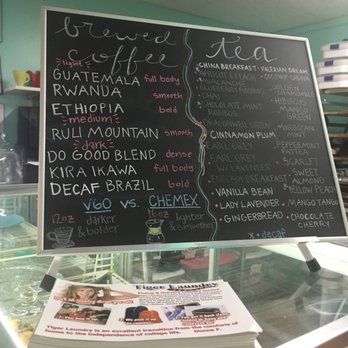 brewed
coffee
light
GUATEMALA full body
RWANDA smooth
ETHIOPIA bold
medium
RULI MOUNTAIN smooth
dark
DO GOOD BLEND dense
KIRA IKAWA full body
DECAF BRAZIL bold
V60 vs. CHEMEX
12oz darker & bolder
16oz lighter & smoother
tea
CHINA BREAKFAST • VALERIAN DREAM
APRICOT & PEACH • COCONUT CREAM
AVALANCHE
BLUEBERRY ROOIBOS • GOLDEN CHAMOMILE
CHAI
• HIBISCUS
CHOCOLATE MINT ROOIBOS
MANGO GREEN
• MOROCCAN MINT
CINNAMON PLUM
EARL GREY
• PEPPERMINT
EARL GREY W/ LAVENDER
• SCARLET
ENGLISH BREAKFAST
• SWEET ALMOND
• VANILLA BEAN
• YELLOW PEACH
• LADY LAVENDER • MANGO TANGO
• GINGERBREAD • CHOCOLATE CHERRY
* = decaf
Tiger Laundry
Tiger Laundry is an excellent transition from the comforts of
home to the independence of college life. Donna F.